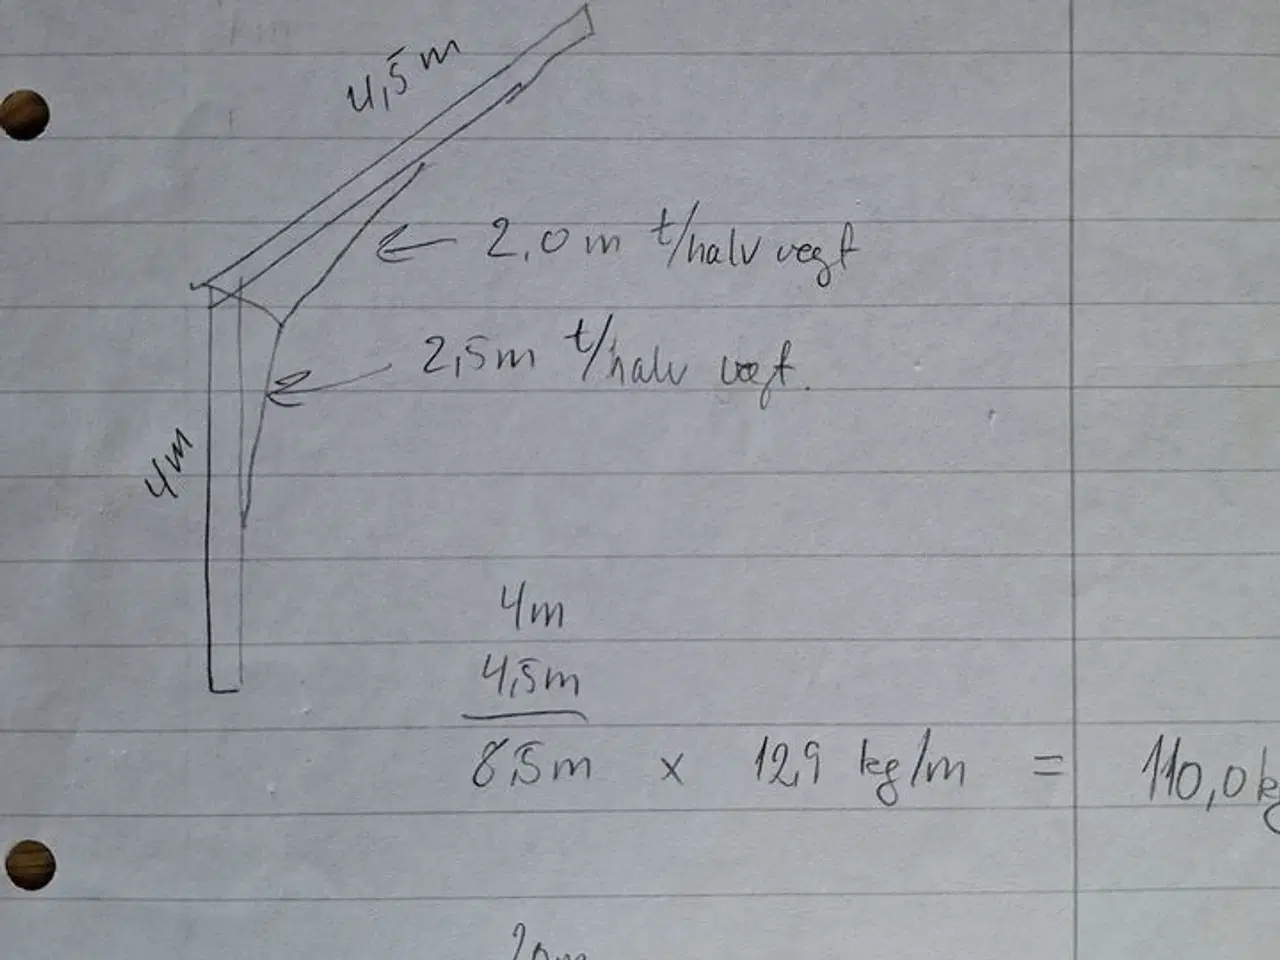 4,5m
2,0m t/halv vegt
2,5m t/halv vægt.
4m
4m
4,5m
8,5m x 12,9 kg/m = 110,0 kg
2,0m